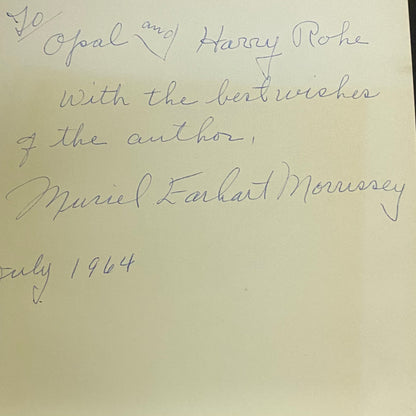 To
Opal and Harry Rohe
With the best wishes
of the author,
Muriel Earhart Morrissey
July 1964